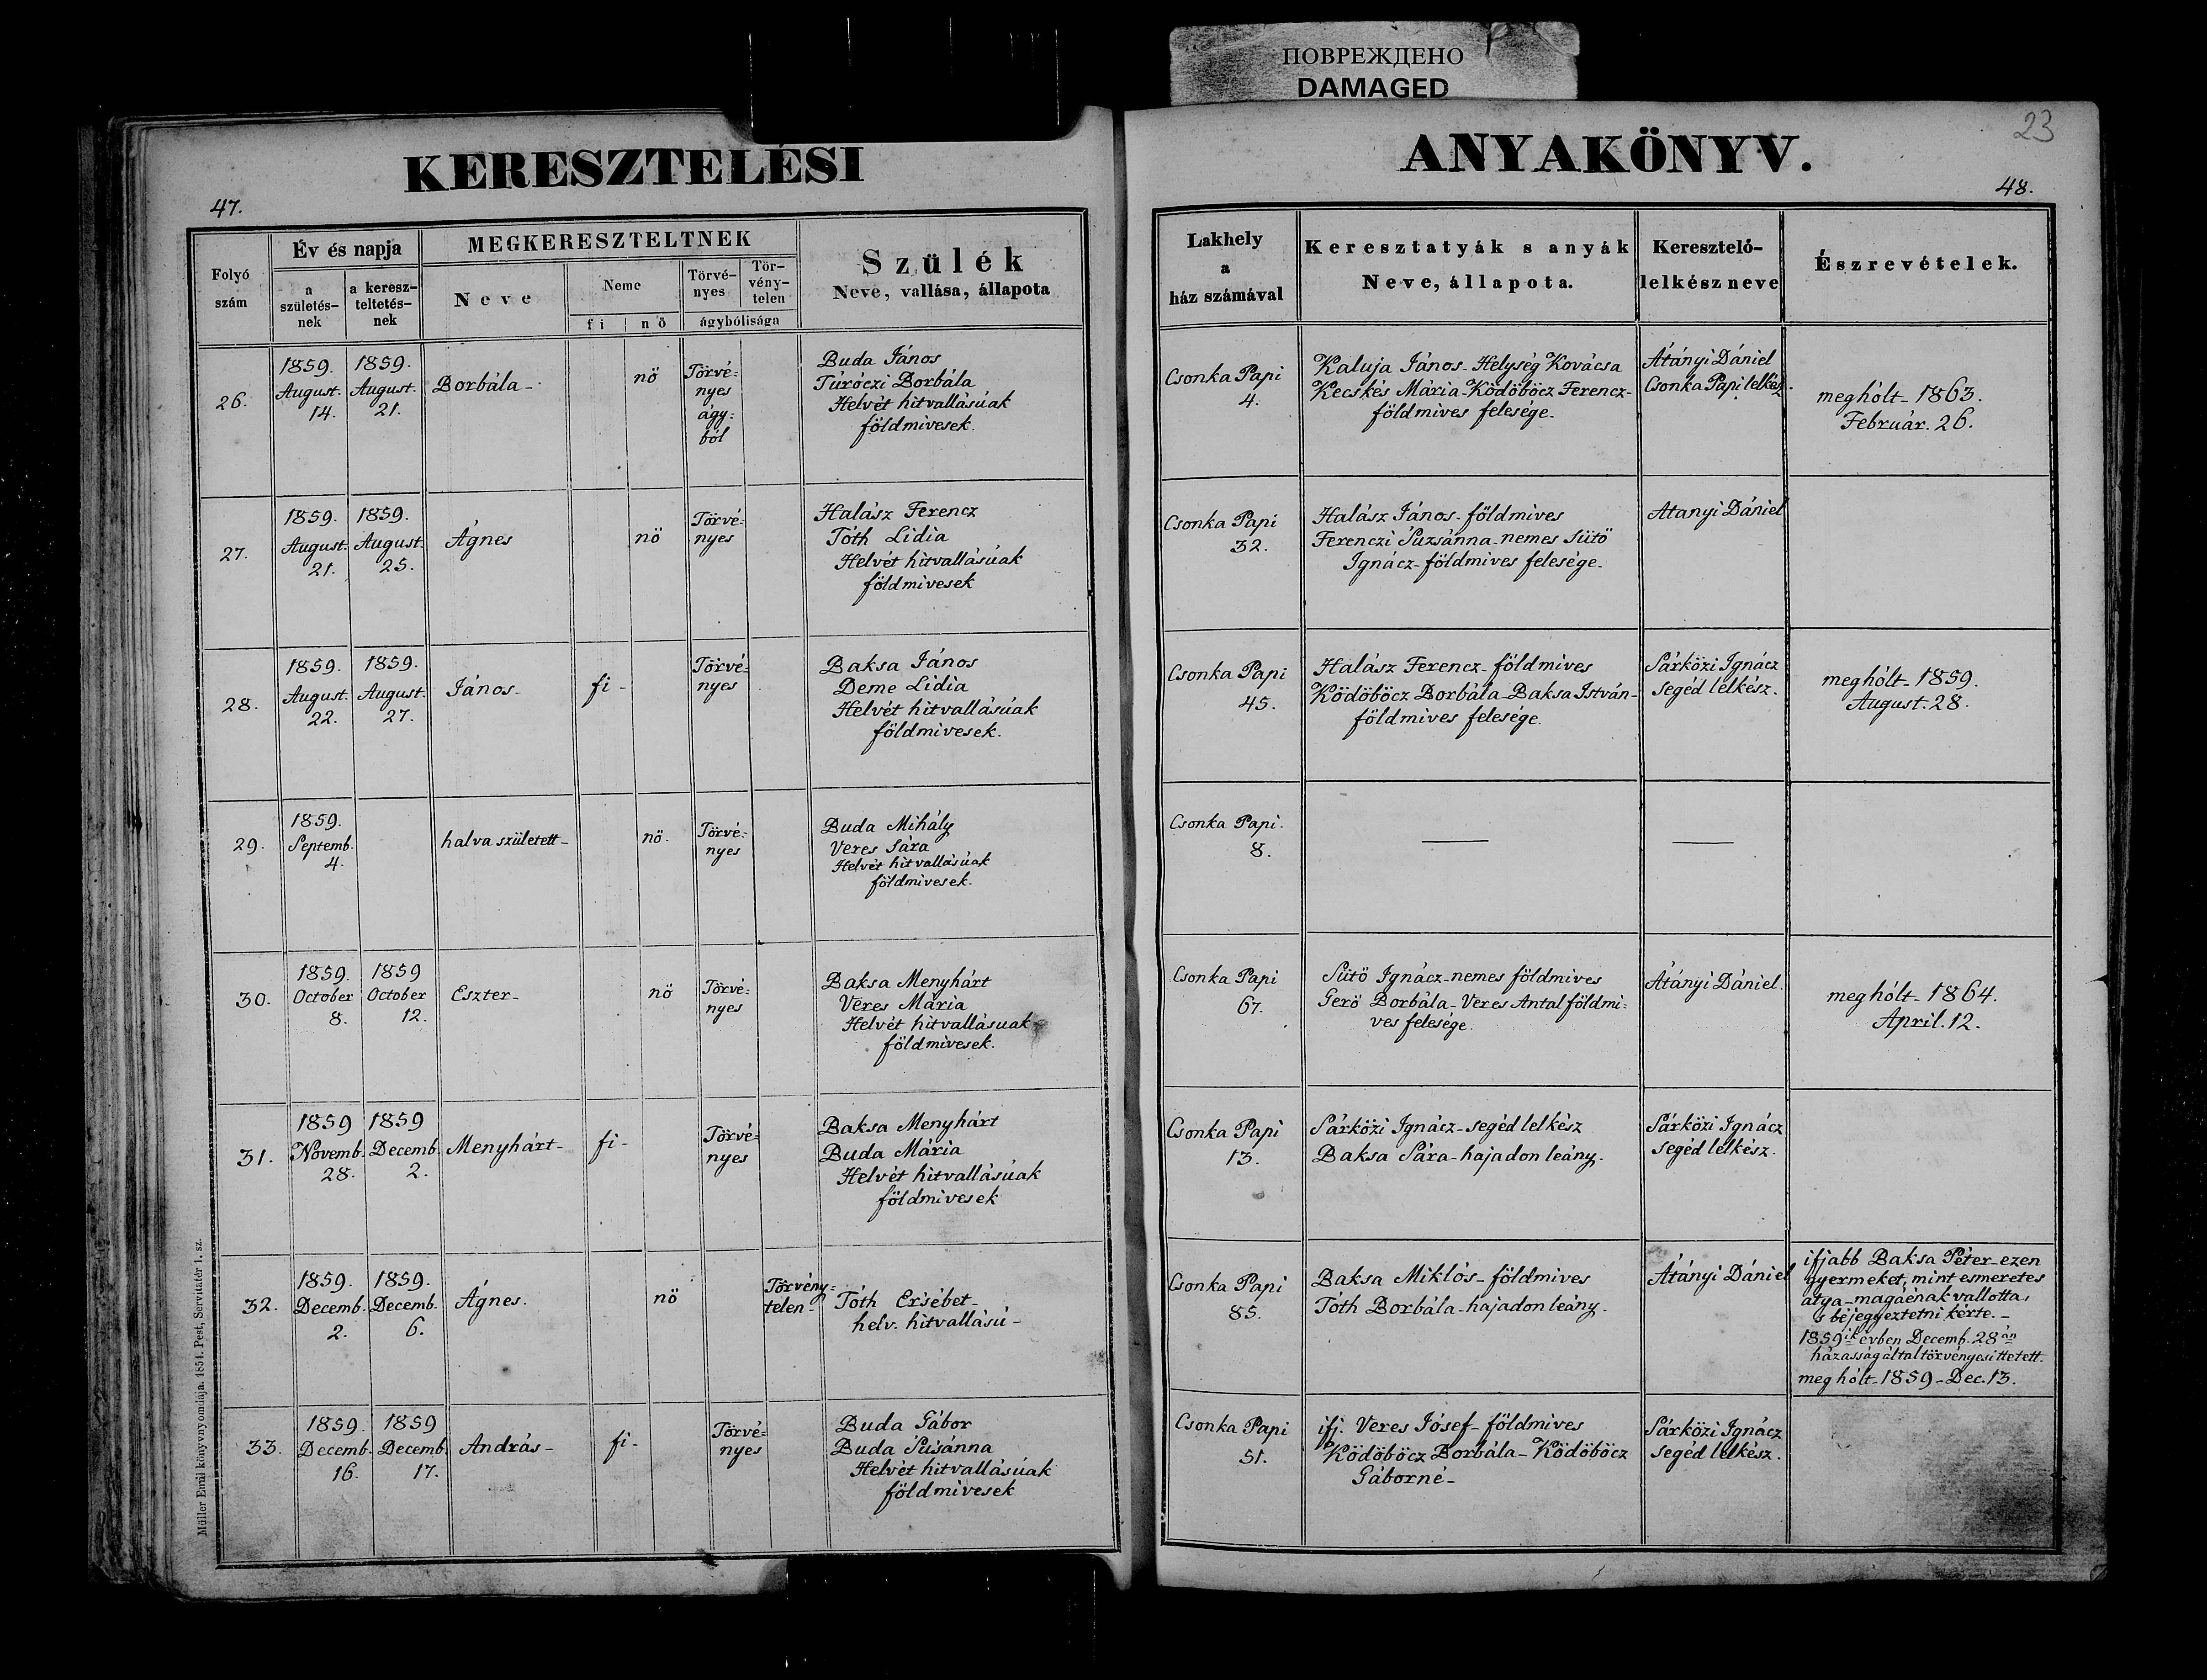 ПОВРЕЖДЕНО
DAMAGED
23
KERESZTELÉSI
ANYAKÖNYV.
47.
48.
Folyó szám
Év és napja
a születés-nek
a keresz-teltetés-nek
MEGKERESZTELTNEK
Neve
Neme
fi
nö
Törvé-nyes
Tör-vény-telen
ágybólisága
Szülék
Neve, vallása, állapota
Lakhely
a
ház számával
Keresztatyák s anyák
Neve, állapota.
Keresztelő-
lelkész neve
Észrevételek.
26.
1859.
August.
14.
1859.
August.
21.
Borbála-
nö
Törvé=
nyes
ágy=
ból
Buda János
Túróczi Borbála
Helvét hitvallásúak
földmivesek.
Csonka Papi
4.
Kaluja János-Helység Kovácsa
Kecskés Mária-Ködöböcz Ferencz-
földmives felesége-
Átányi Dániel
Csonka Papi lelkész.
meghólt-1863.
Február. 26.
27.
1859.
August.
21.
1859.
August.
25.
Ágnes
nö
Törvé=
nyes
Halász Ferencz
Tóth Lidia
Helvét hitvallásúak
földmivesek
Csonka Papi
32.
Halász János-földmives
Ferenczi Súzsánna-nemes Sütö
Ignácz-földmives felesége-
Atanyi Dániel
28.
1859.
August.
22.
1859.
August.
27.
János-
fi-
Törvé=
nyes
Baksa János
Deme Lidia
Helvét hitvallásúak
földmivesek.
Csonka Papi
45.
Halász Ferencz-földmives
Ködöböcz Borbála-Baksa István-
földmives felesége.
Sárközi Ignácz
segéd lelkész.
meghólt-1859.
August. 28.
29.
1859.
Septemb.
4.
halva született-
nö.
Törvé=
nyes
Buda Mihály
Veres Sára
Helvét hitvallásúak
földmivesek.
Csonka Papi.
8.
30.
1859.
October
8.
1859
October
12.
Eszter-
nö
Törvé=
nyes
Baksa Menyhárt
Veres Mária
Helvét hitvallásuak
földmivesek.
Csonka Papi
67.
Sütö Ignácz-nemes földmives
Gerö Borbála-Veres Antal földmi=
ves felesége.
Átányi Dániel.
meghólt-1864.
April. 12.
31.
1859
Novemb.
28.
1859
Decemb.
2.
Menyhárt-
fi-
Törvé=
nyes
Baksa Menyhárt
Buda Mária
Helvét hitvallásúak
földmivesek
Csonka Papi
13.
Sárközi Ignácz-segéd lelkész
Baksa Sára-hajadon leány.
Sárközi Ignácz
segéd lelkész.
32.
1859.
Decemb.
2.
1859.
Decemb.
6.
Ágnes.
nö
Törvény=
telen-
Tóth Ersébet-
helv. hitvallású-
Csonka Papi
85.
Baksa Miklós-földmives
Tóth Borbála-hajadon leány.
Átányi Dániel
ifjabb Baksa Péter-ezen
gyermeket, mint esmeretes
atya-magáénak vallotta,
s béjegyeztetni kérte.-
1859ik évben Decemb. 28án
házasság által törvényesittetett.
meghólt-1859-Dec. 13.
33.
1859.
Decemb.
16.
1859
Decemb.
17.
András-
fi-
Törvé=
nyes
Buda Gábor
Buda Súsánna
Helvét hitvallásúak
földmivesek
Csonka Papi
51.
ifj. Veres Jósef-földmives
Ködöböcz Borbála-Ködöböcz
Gáborné-
Sárközi Ignácz
segéd lelkész.
Müller Emil könyvnyomdája. 1854. Pest, Servitatér 1. sz.